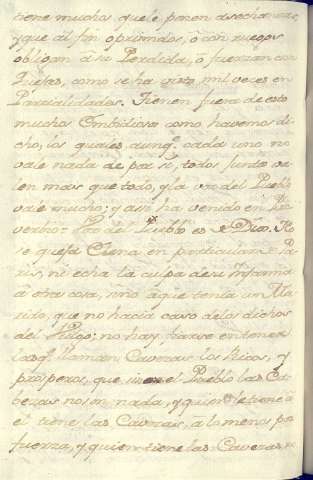 tiene muchos que le ponen asechanzas,
y que al fin oprimidos, ò con ruegos
obligan a su Perdida, ò fuerzan con
Quejas, como se ha visto mil veces en
Parcialidades. Tienen fuera de esto
muchos Embidiosos como havemos di-
cho, los quales aunq.e cada uno no
vale nada de por sí, todos juntos va-
len mas que todo, y la voz del Pueblo
vale mucho; y asi ha venido en Pro
verbio: Voz del Pueblo es de Dios. No
se queja Elena en particular de Pa
ris, ni echa la culpa de su infamia
à otra cosa, sino à que tenia un Ma
rido, que no hacia caso de los dichos
del Vulgo; no hay fiarse en tener
las q.e llaman Caveras los Ricos, y
prosperos, que en el Pueblo las Ca-
bezas no son nada, y quien le tiene à
el tiene las Caveras, a lo menos por
fuerza, y quien tiene las Caveras, no